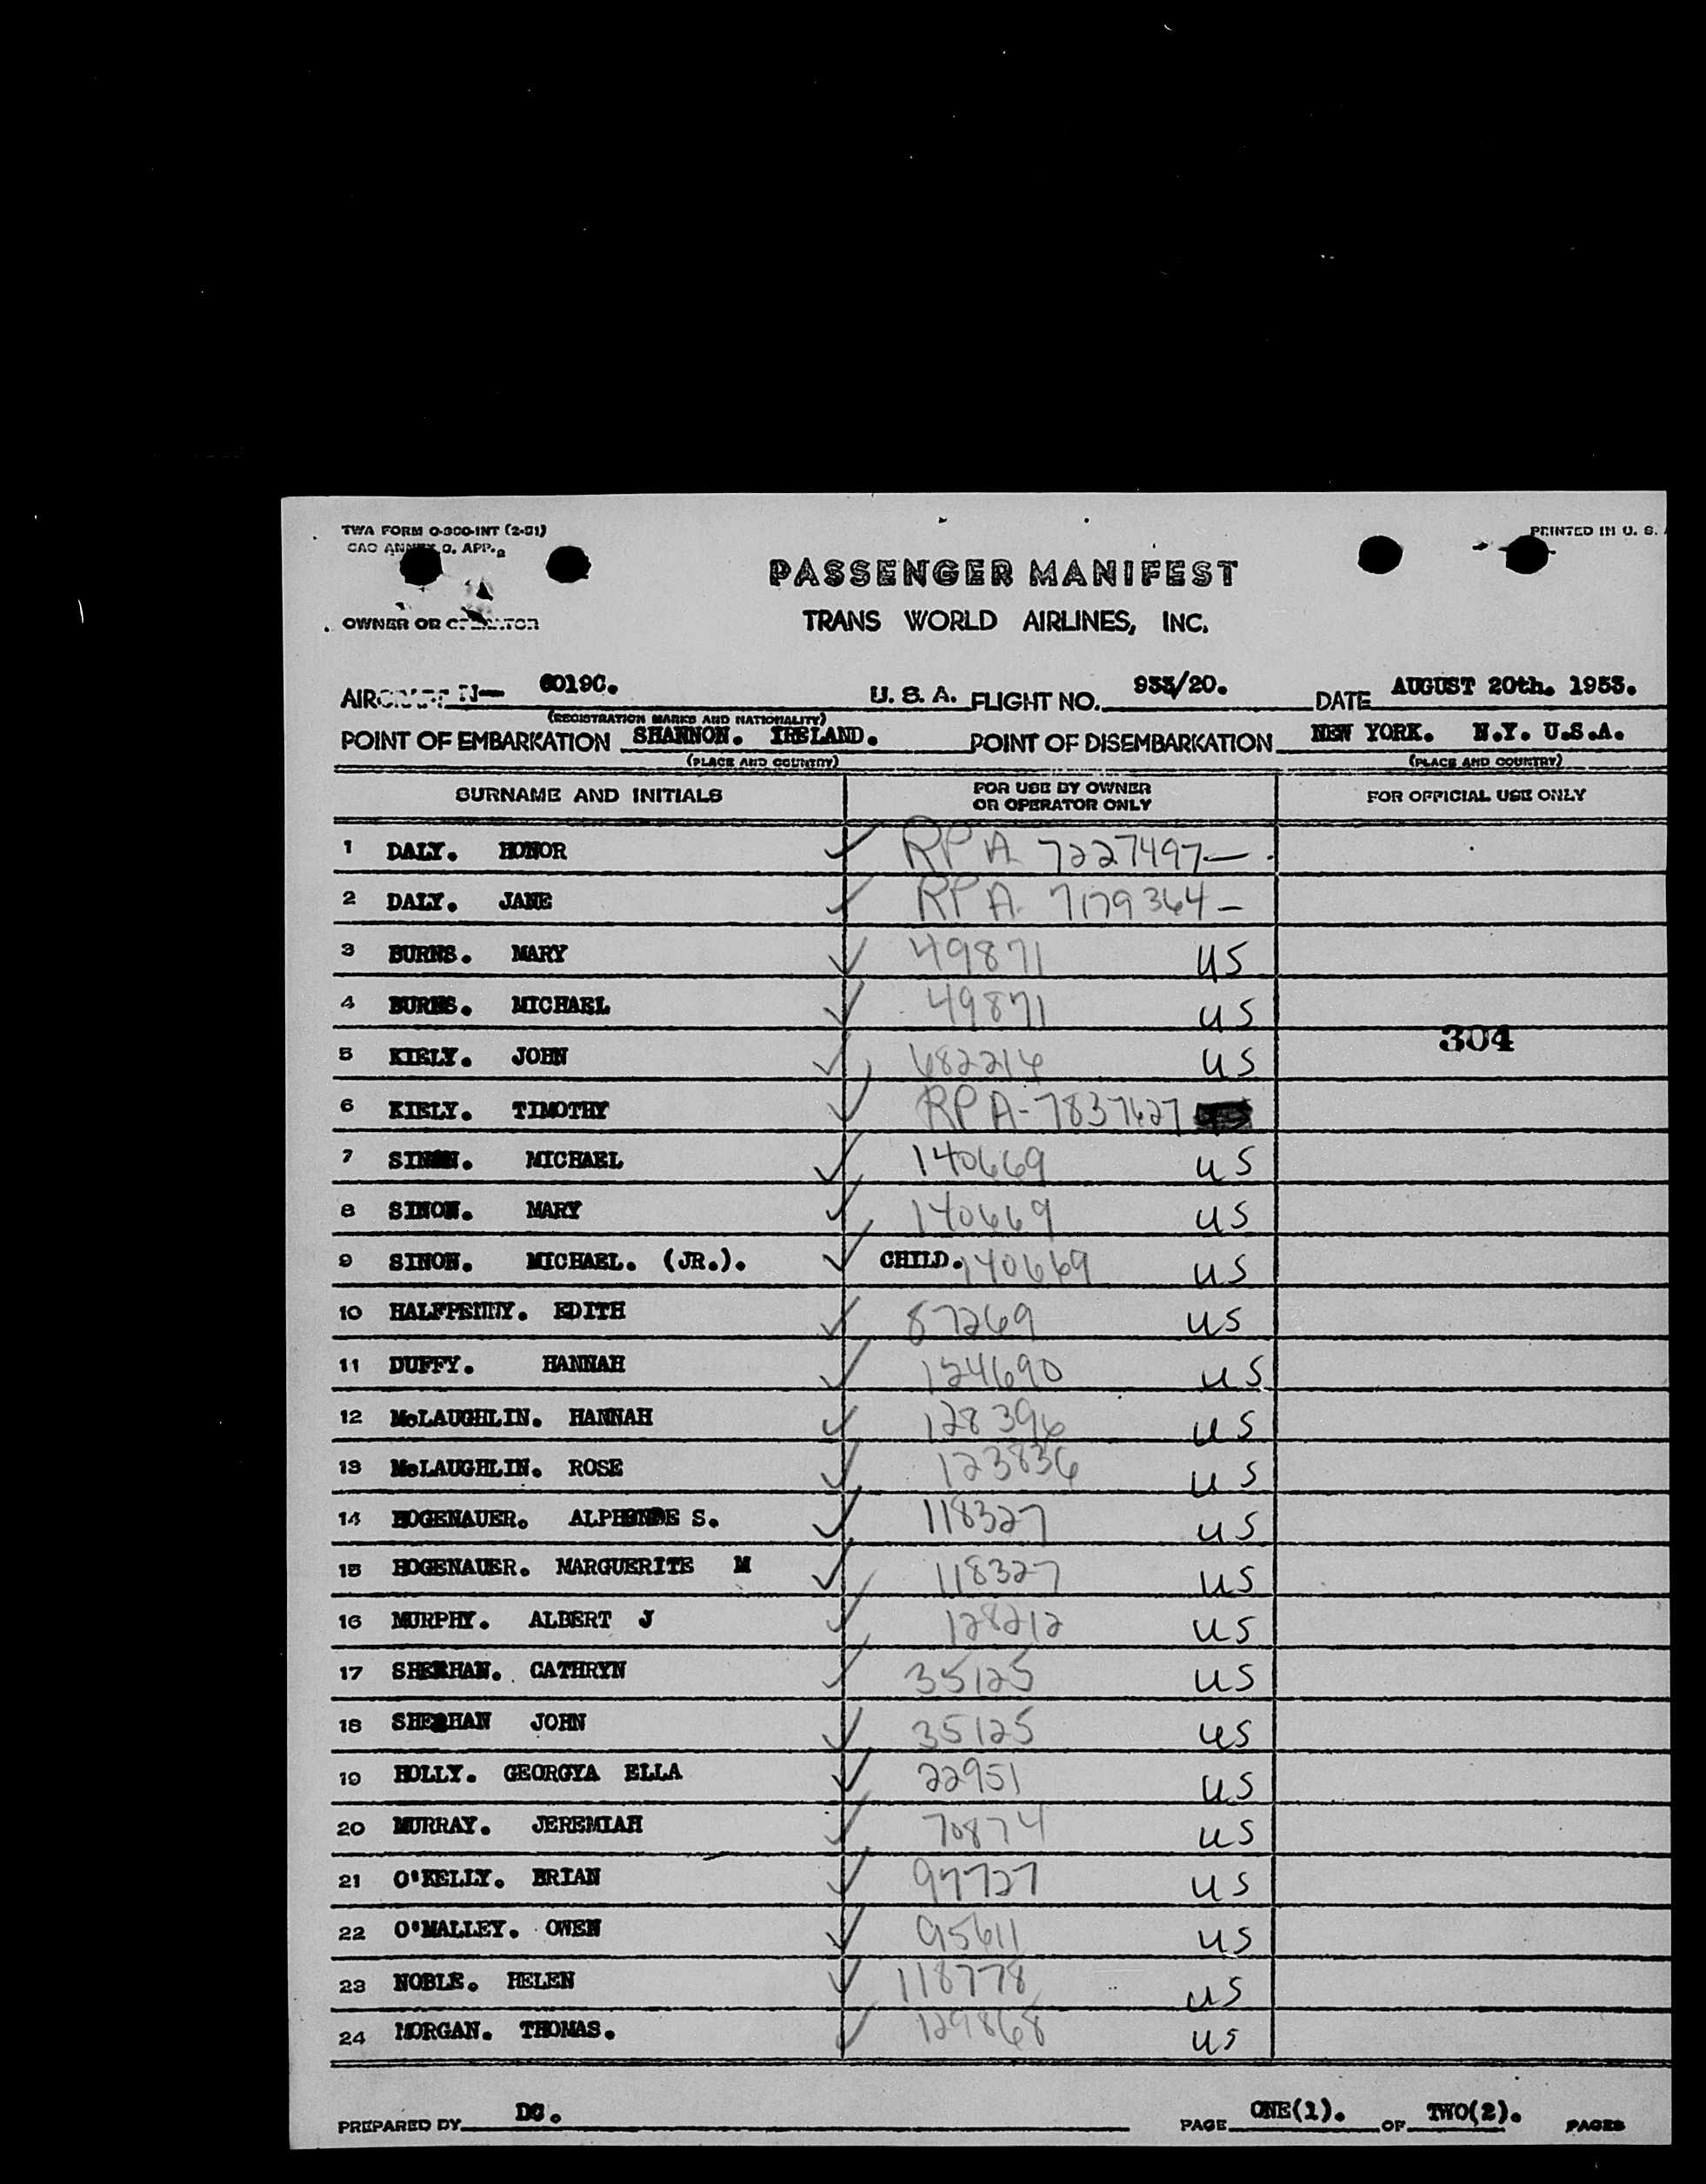 TWA FORM O-300-INT (2-51)
PRINTED IN U. S.
PASSENGER MANIFEST
OWNER OR OPERATOR
TRANS WORLD AIRLINES, INC.
AIRCRAFT N— 6019C. U. S. A. FLIGHT NO. 933/20. DATE AUGUST 20th. 1953.
(REGISTRATION MARKS AND NATIONALITY)
POINT OF EMBARKATION SHANNON. IRELAND. POINT OF DISEMBARKATION NEW YORK. N.Y. U.S.A.
(PLACE AND COUNTRY) (PLACE AND COUNTRY)
SURNAME AND INITIALS FOR USE BY OWNER OR OPERATOR ONLY FOR OFFICIAL USE ONLY
1 DALY. HONOR ✓ RPA 7227497—
2 DALY. JANE ✓ RPA. 7179364—
3 BURNS. MARY ✓ 49871 US
4 BURNS. MICHAEL ✓ 49871 US
304
5 KIELY. JOHN ✓ 682214 US
6 KIELY. TIMOTHY ✓ RPA-7837627
7 SINON. MICHAEL ✓ 140669 US
8 SINON. MARY ✓ 140669 US
9 SINON. MICHAEL. (JR.). ✓ CHILD. 140669 US
10 HALFPENNY. EDITH ✓ 87269 US
11 DUFFY. HANNAH ✓ 124690 US
12 McLAUGHLIN. HANNAH ✓ 128396 US
13 McLAUGHLIN. ROSE ✓ 123836 US
14 HOGENAUER. ALPHONSE S. ✓ 118327 US
15 HOGENAUER. MARGUERITE M ✓ 118327 US
16 MURPHY. ALBERT J ✓ 128212 US
17 SHEEHAN. CATHRYN ✓ 35125 US
18 SHEEHAN JOHN ✓ 35125 US
19 HOLLY. GEORGYA ELLA ✓ 22951 US
20 MURRAY. JEREMIAH ✓ 70874 US
21 O'KELLY. BRIAN ✓ 97727 US
22 O'MALLEY. OWEN ✓ 95611 US
23 NOBLE. HELEN ✓ 118778 US
24 MORGAN. THOMAS. ✓ 129868 US
PREPARED BY DC. PAGE ONE(1). OF TWO(2). PAGES